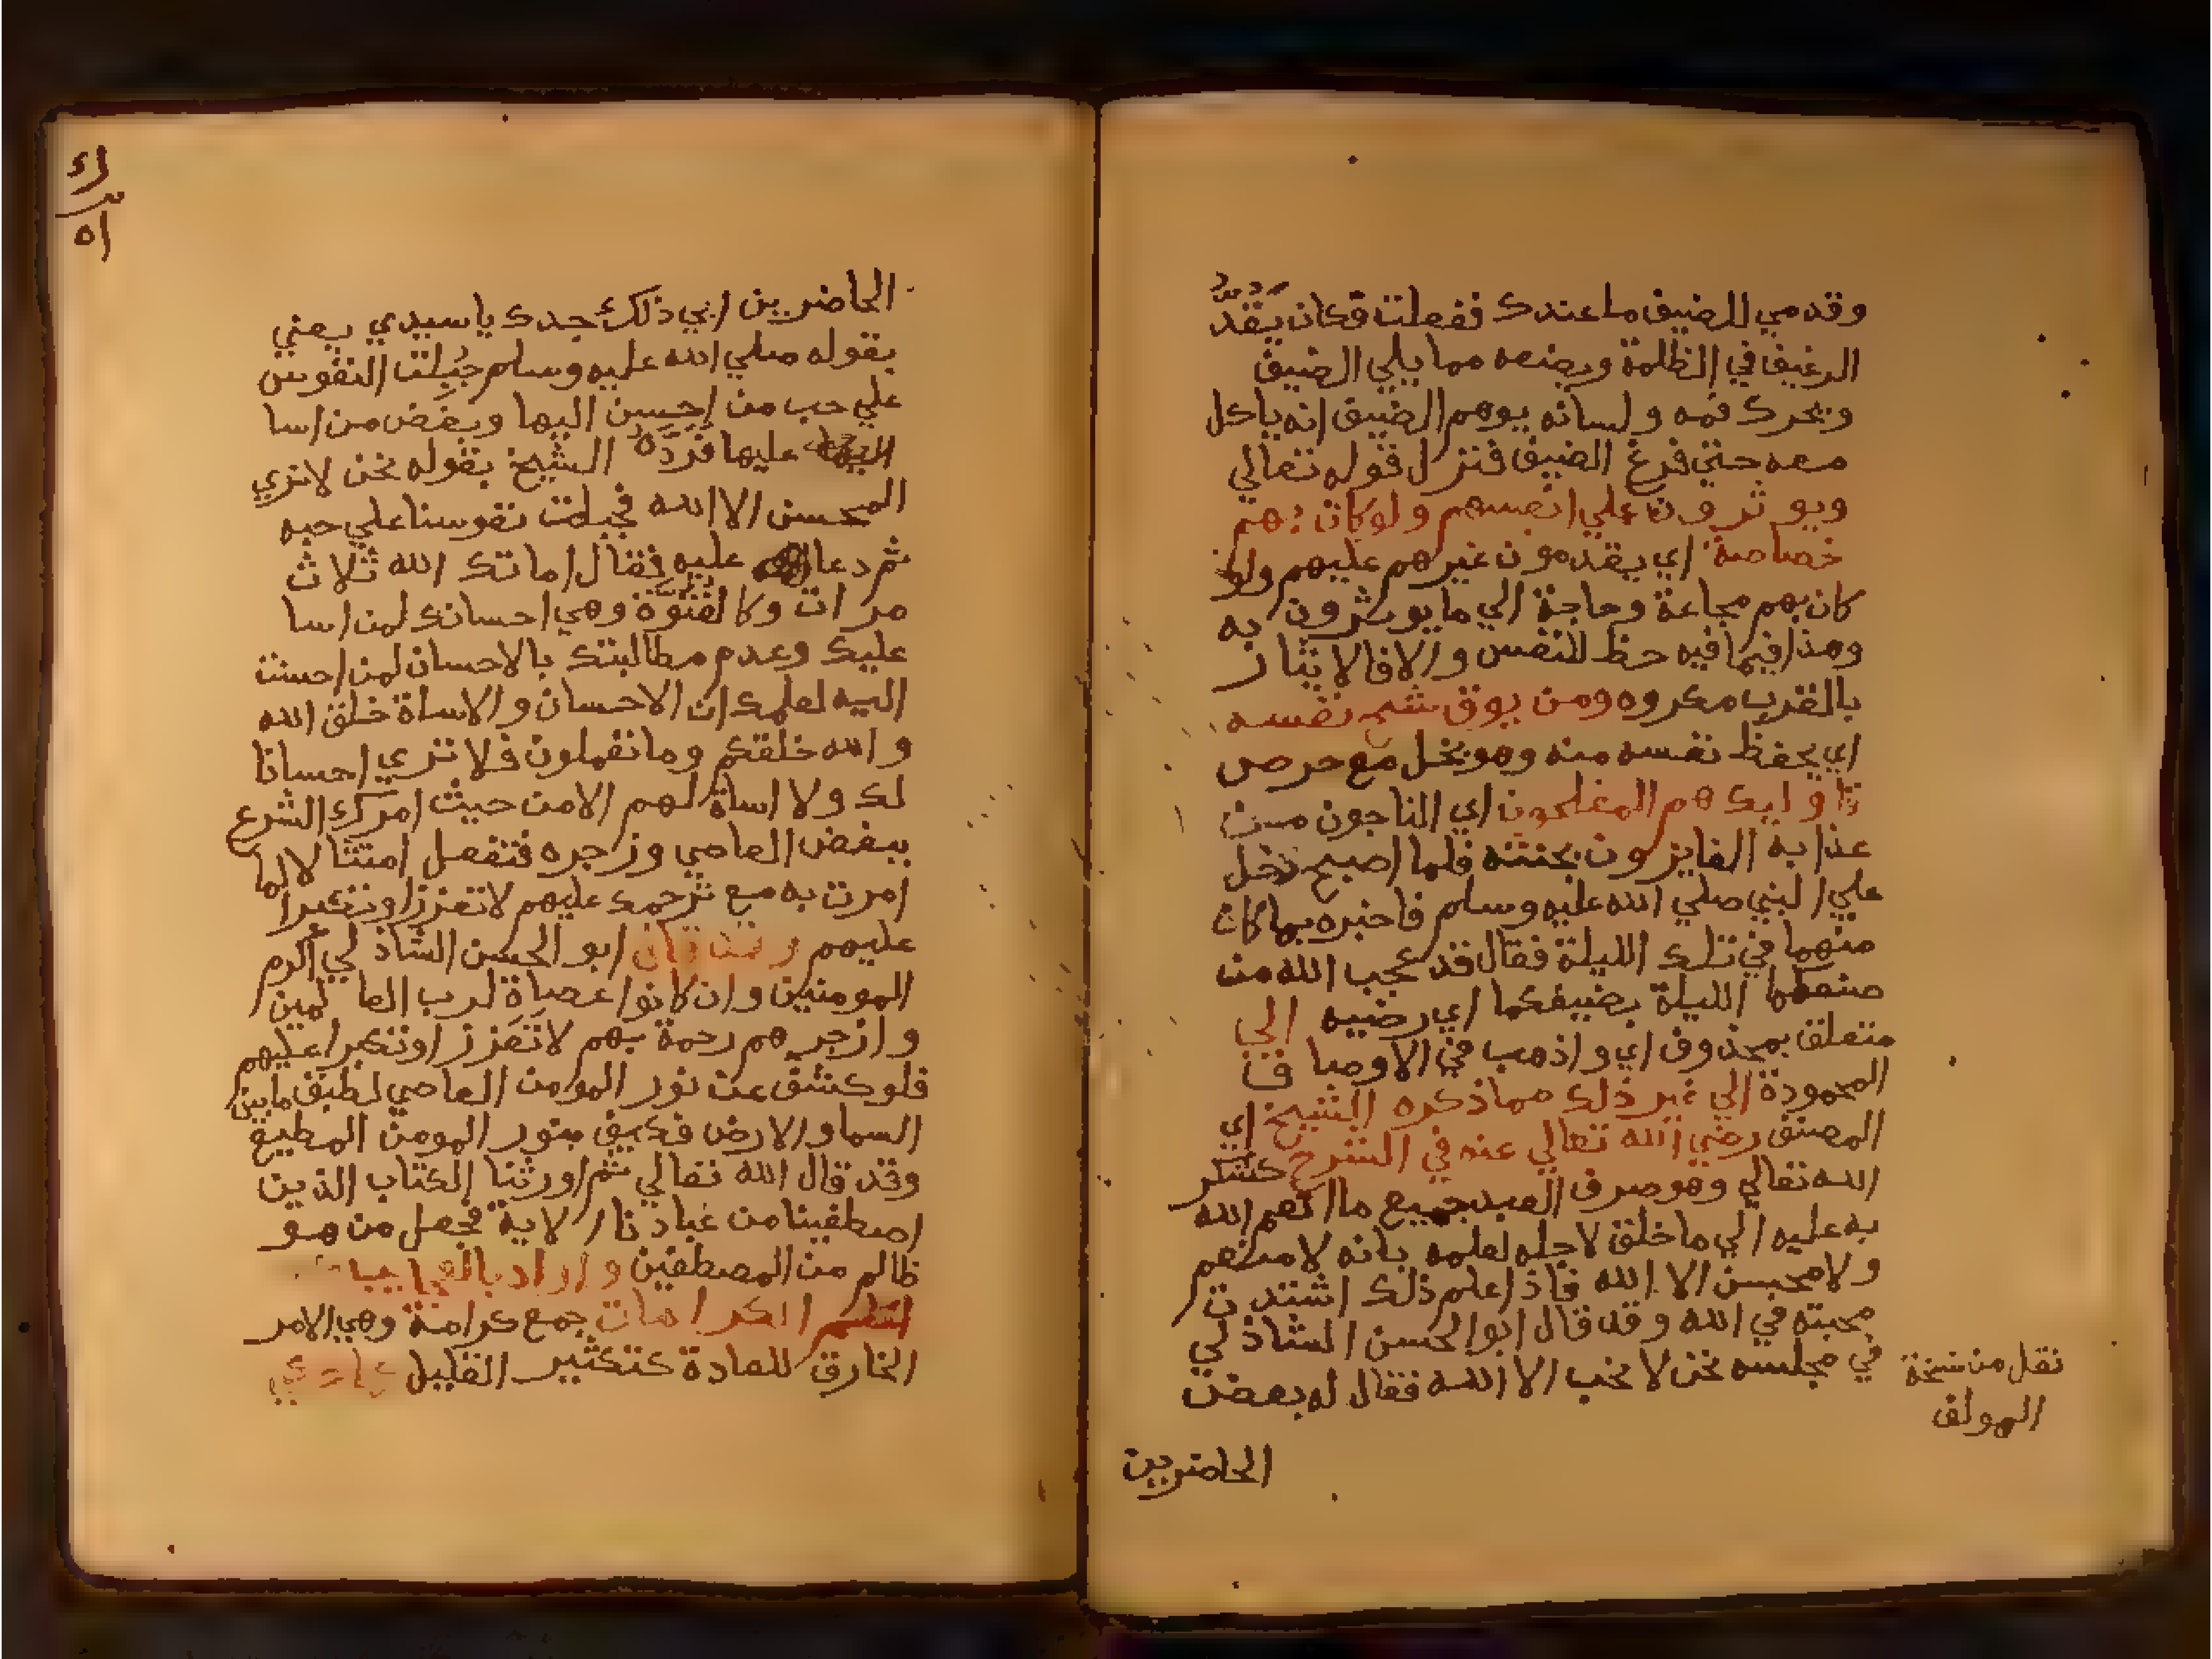 وقدمي للضيف ما عندك ففعلت فكان يقد
الرغيف في الظلمة ويضعه مما يلي الضيف
ويحرك فمه ولسانه يوهم الضيف انه ياكل
معه حتي فرغ الضيف فنزل قوله تعالي
ويوثرون علي انفسهم ولو كان بهم
خصاصة اي يقدمون غيرهم عليهم ولو
كان بهم مجاعة وحاجة الي ما يوثرون به
وهذا فيما فيه حظ للنفس والا فالايثار
بالقرب مكروه ومن يوق شح نفسه
اي يحفظ نفسه منه وهو بخل مع حرص
هم المفلحون اي الناجون من
عذابه الفايزون بجنته فلما اصبح دخل
علي النبي صلي الله عليه وسلم فاخبره بما كان
منهما في تلك الليلة فقال قد عجب الله من
صنعكما الليلة بضيفكما اي رضيه الي
متعلق بمحذوف اي واذهب في الاوصاف
المحمودة الي غير ذلك مما ذكره الشيخ اي
المصنف رضي الله تعالي عنه في الشرح كشكر
الله تعالي وهو صرف العبد جميع ما انعم الله
به عليه الي ما خلق لاجله لعلمه بانه لا منعم
ولا محسن الا الله فاذا علم ذلك اشتدت
محبته في الله وقد قال ابو الحسن الشاذلي
في مجلسه نحن لا نحب الا الله فقال له بعض
نقل من نسخة
المولف
الحاضرين
اه
الحاضرين ابي ذلك جدك يا سيدي يعني
بقوله صلي الله عليه وسلم جُبِلت النفوس
علي حب من احسن اليها وبغض من اسا
عليها فردّه الشيخ بقوله نحن لا نري
المحسن الا الله فجبلت نفوسنا علي حبه
ثم دعا عليه فقال اماتك الله ثلاث
مرات وكالفتوّة وهي احسانك لمن اسا
عليك وعدم مطالبتك بالاحسان لمن احسنت
اليه لعلمك ان الاحسان والاساة خلق الله
والله خلقكم وما تعملون فلا تري احسانا
لك ولا اساة لهم الا من حيث امرك الشرع
ببغض العاصي وزجره فتفعل امتثالا لما
امرت به مع ترحمك عليهم لا تعززا وتكبرا
عليهم وقد قال ابو الحسن الشاذلي اكرم
المومنين وان كانوا عصاة لرب العالمين
وازجرهم رحمة بهم لا تعززا وتكبرا عليهم
فلو كشف عن نور المومن العاصي لطبق ما بين
السما والارض فكيف بنور المومن المطيع
وقد قال الله تعالي ثم اورثنا الكتاب الذين
اصطفينا من عبادنا الاية فجعل من هو
ظالم من المصطفين واراد بالعجايب
الكرامات جمع كرامة وهي الامر
الخارق للعادة كتكثير القليل